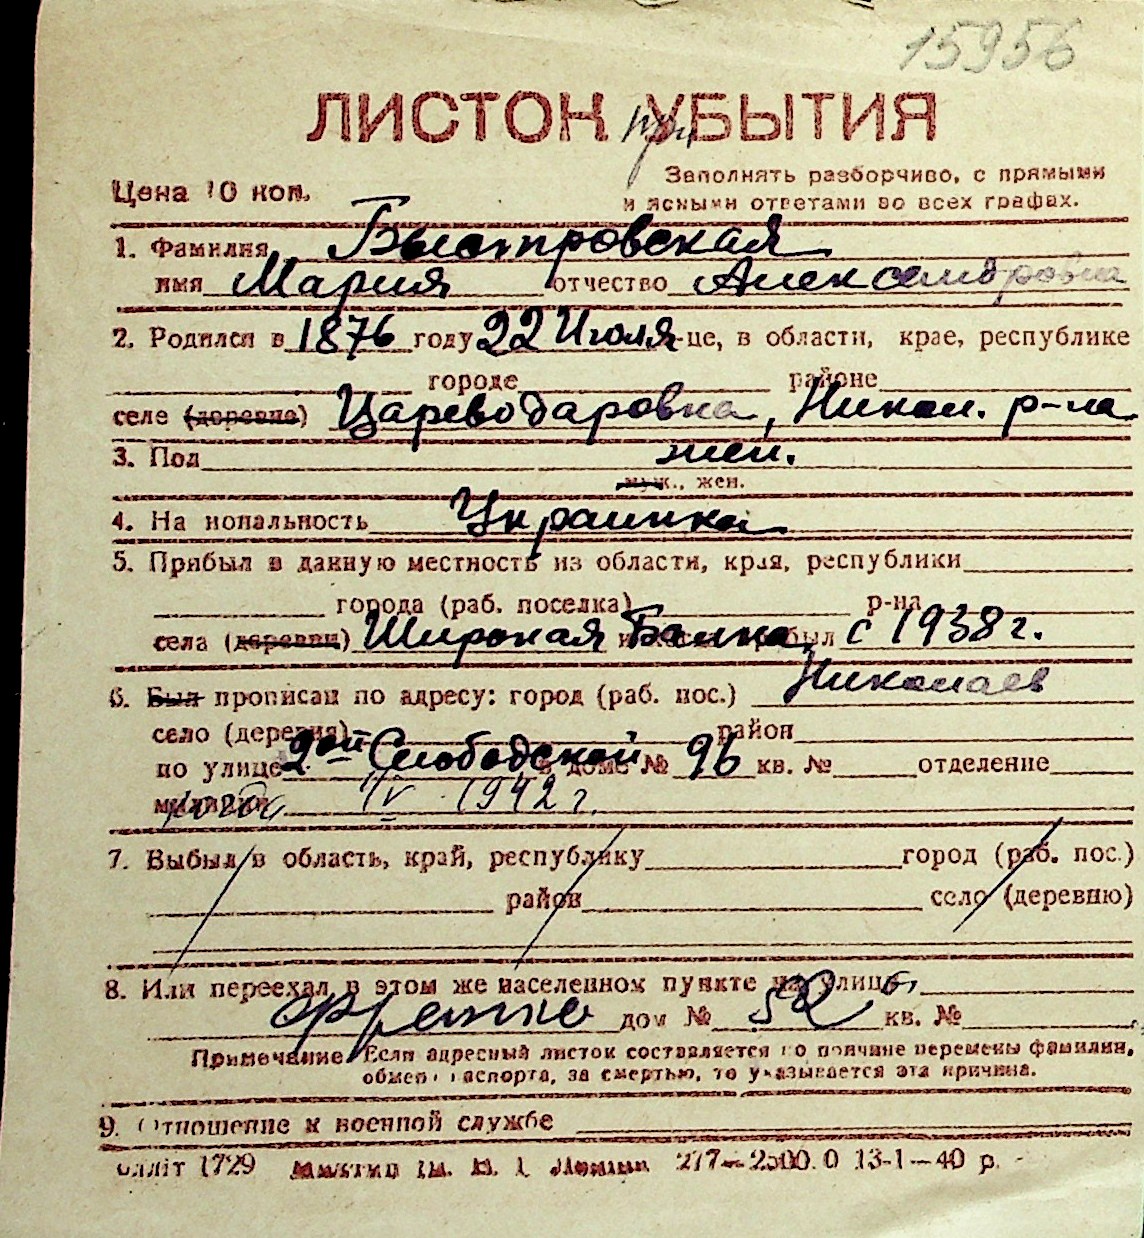 15956
ЛИСТОК при УБЫТИЯ
Цена 10 коп.
Заполнять разборчиво, с прямыми
и ясными ответами во всех графах.
1. Фамилия Быстровская
имя Мария отчество Александровна
2. Родился в 1876 году 22 Июля -це, в области, крае, республике
городе районе
селе (деревне) Цареводаровка, Никол. р-на
3. Пол жен.
муж., жен.
4. На иональность Украинка
5. Прибыл в данную местность из области, края, республики
города (раб. поселка) р-на
села (деревни) Широкая Балка, с 1938 г.
6. Был прописан по адресу: город (раб. пос.) Николаев
село (деревня) район
по улице 2ой Слободской в доме № 96 кв. № отделение
милиции IV 1942 г.
7. Выбыл в область, край, республику город (раб. пос.)
район село (деревню)
8. Или переехал в этом же населенном пункте на улицу
Франко дом № 52 кв. №
Примечание Если адресный листок составляется по причине перемены фамилии,
обмен паспорта, за смертью, то указывается эта причина.
9. Отношение к военной службе
1729 277—2500.0 13-1—40 р.